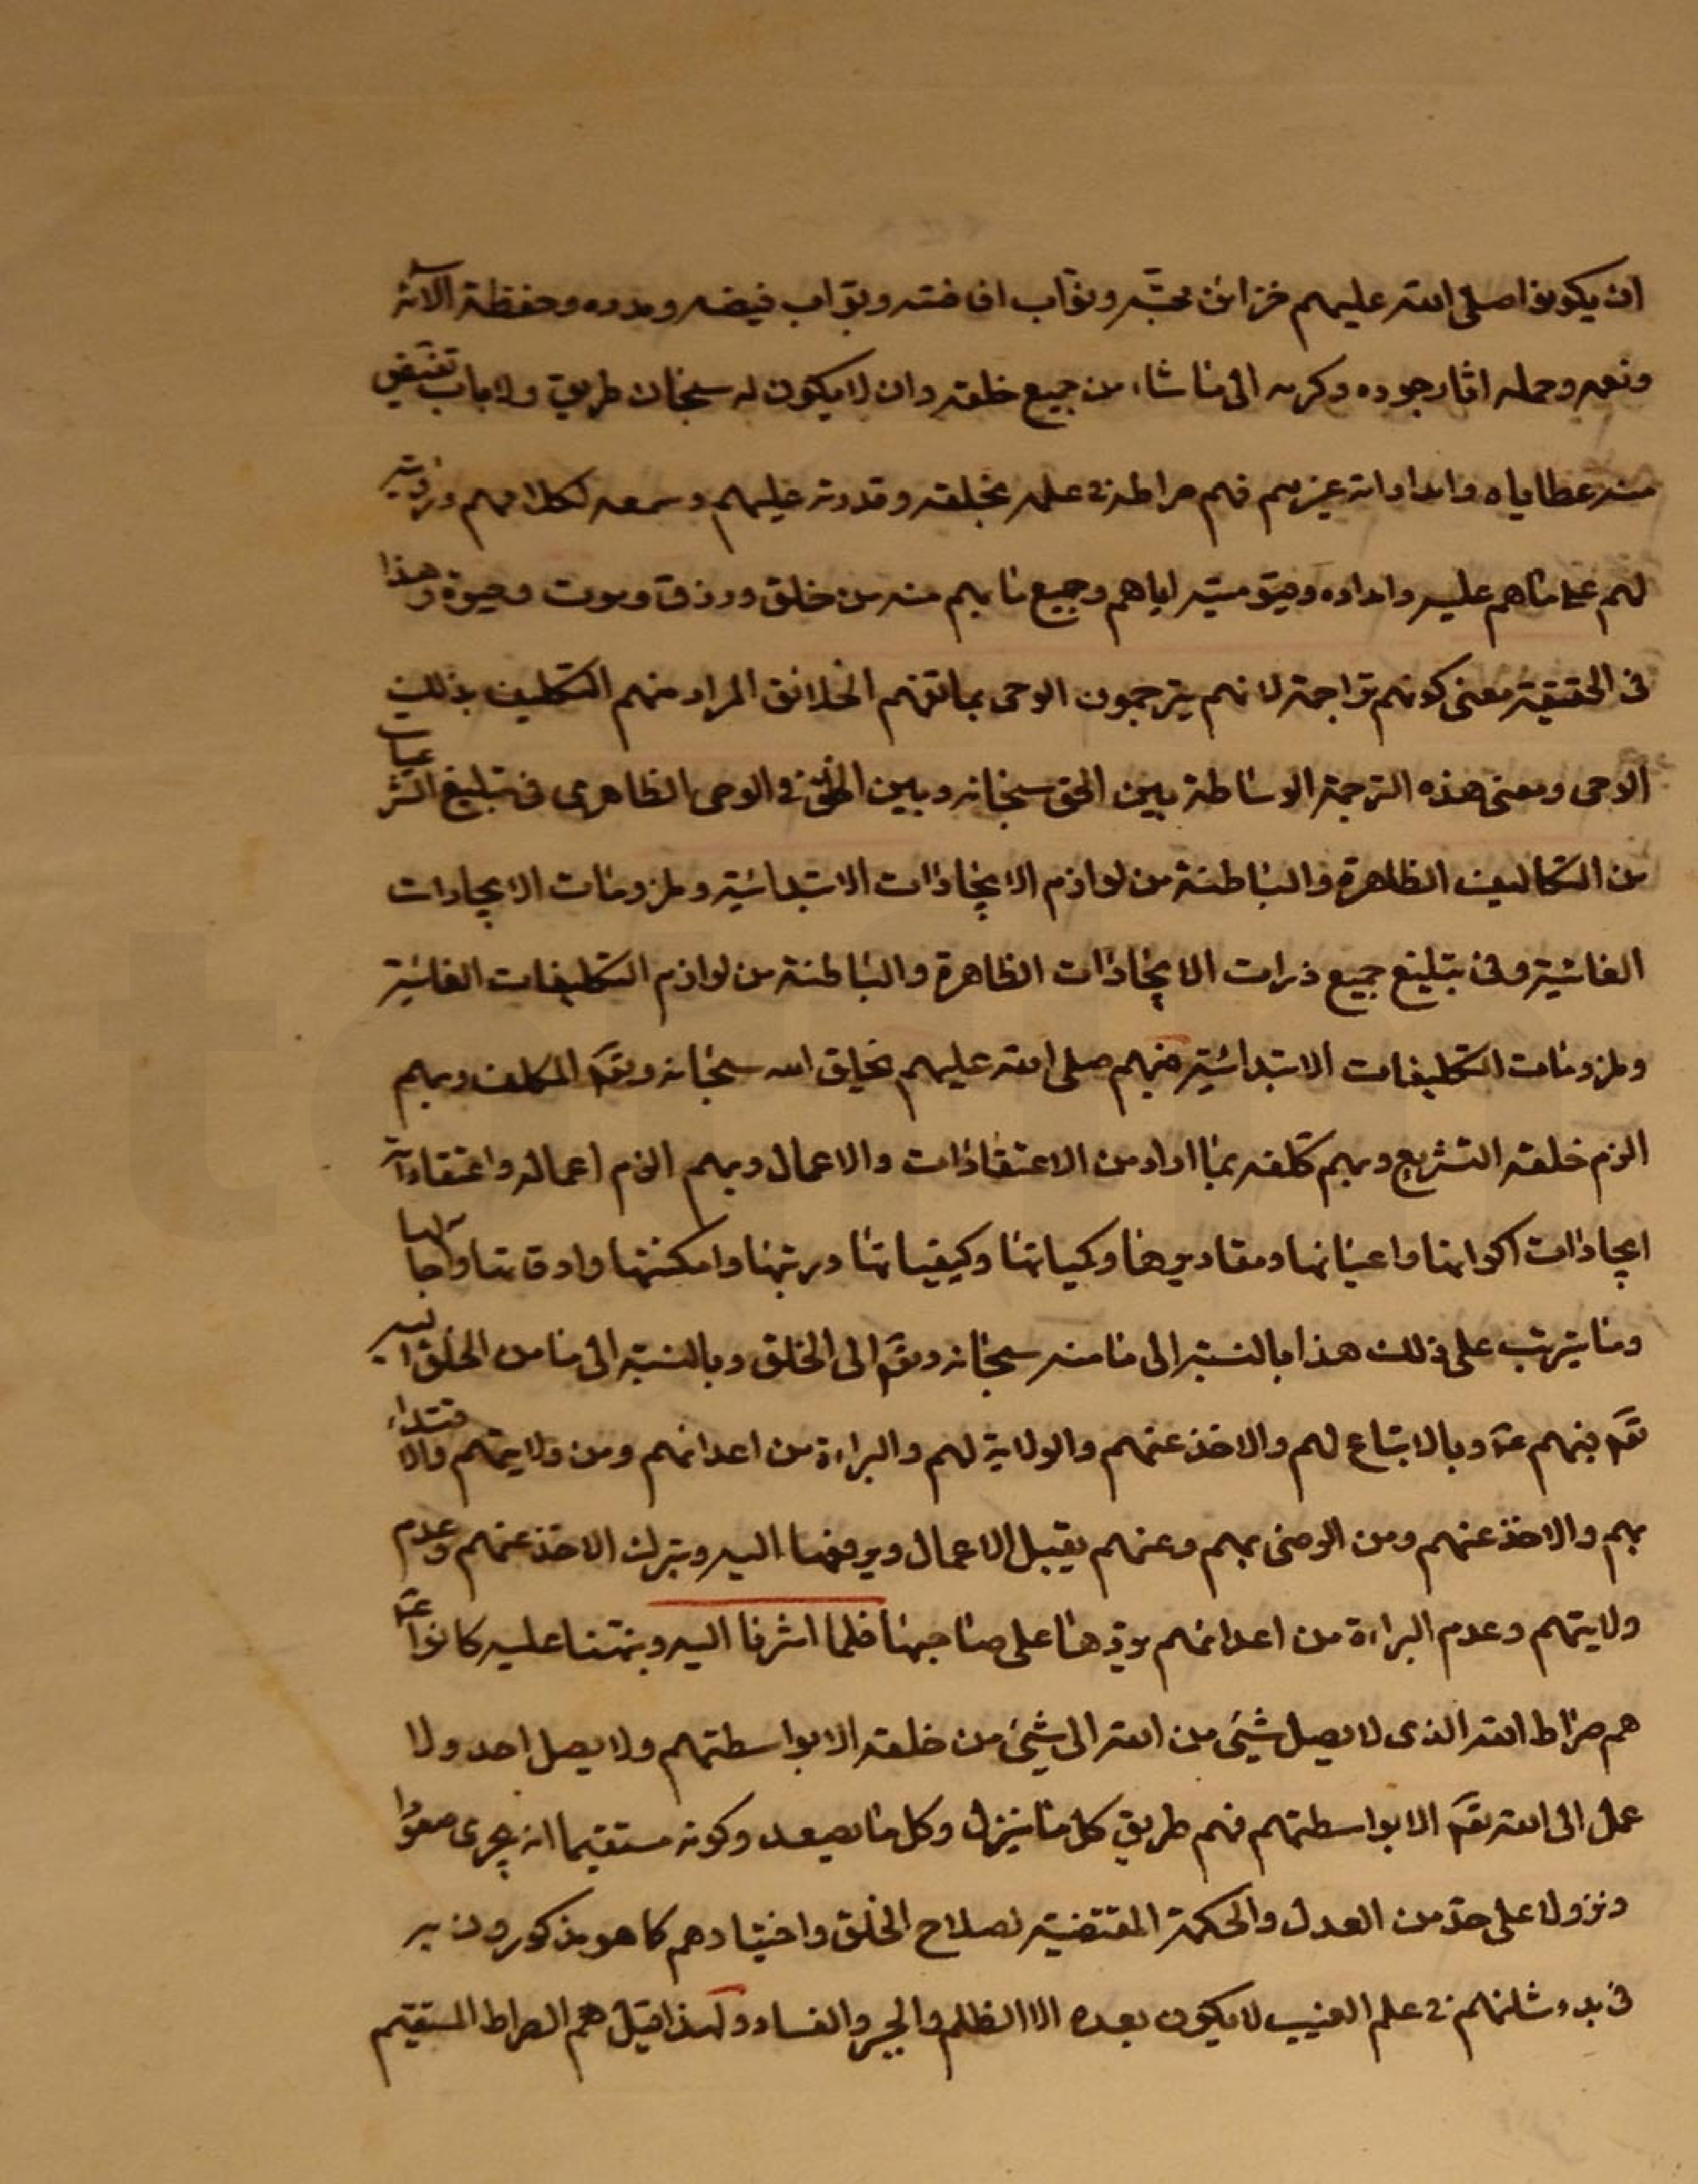 ان يكونوا صلى الله عليهم خزائن محبته ونواب افاضته وبواب فيضه ومدده وحفظة آلائه
ونعمه وحملة اثار جوده وكرمه الى ما شاء من جميع خلقه وان لا يكون له سبحانه طريق ولا باب تفيض
منه عطاياه وامداداته غيرهم فهم صراطه فى علمه بخلقه وقدرته عليهم وسمعه لكلامهم ورؤيته
لهم على ما هم عليه وامداده وقيوميته اياهم وجميع ما بهم منه من خلق ورزق وموت وحيوة وهذا
فى الحقيقة معنى كونهم تراجمة لانهم يترجمون الوحى بما تفهم الخلائق المراد منهم التكليف بذلك
الوحى ومعنى هذه الترجمة الوساطة بين الحق سبحانه وبين الخلق فى الوحى الظاهرى فى تبليغ الشرعيات
من التكاليف الظاهرة والباطنة من لوازم الايجادات الابتدائية وملزومات الايجادات
الغائية وفى تبليغ جميع ذرات الايجادات الظاهرة والباطنة من لوازم التكليفات الغائية
وملزومات التكليفات الابتدائية فبهم صلى الله عليهم يخلق الله سبحانه وتعالى المكلف وبهم
الزم خلقه التشريع وبهم كلفه بما اراد من الاعتقادات والاعمال وبهم الزم اعماله واعتقاداته
ايجادات اكوانها واعيانها ومقاديرها وكمياتها وكيفياتها ورتبها وامكنتها واوقاتها وآجالها
وما يترتب على ذلك هذا بالنسبة الى ما منه سبحانه وتعالى الى الخلق وبالنسبة الى ما من الخلق اليه
تعالى فبهم ع وبالاتباع لهم والاخذ عنهم والولاية لهم والبراءة من اعدائهم ومن ولايتهم والاقتداء
بهم والاخذ عنهم ومن الرضى بهم وعنهم يقبل الاعمال ويرفعها اليه وبترك الاخذ عنهم وعدم
ولايتهم وعدم البراءة من اعدائهم يردها على صاحبها فلما اشرنا اليه ونبهنا عليه كانوا ع
هم صراط الله الذى لا يصل شيئ من الله الى شيئ من خلقه الا بواسطتهم ولا يصل احد ولا
عمل الى الله تعالى الا بواسطتهم فهم طريق كل ما ينزل وكل ما يصعد وكونه مستقيما انه يجرى صعودا
ونزولا على حد من العدل والحكمة المقتضية لصلاح الخلق واختيارهم كما هو مذكورون به
فى بدء شانهم فى علم الغيب لا يكون بعده الا الظلم والجبر والفساد ولهذا قيل هم الصراط المستقيم